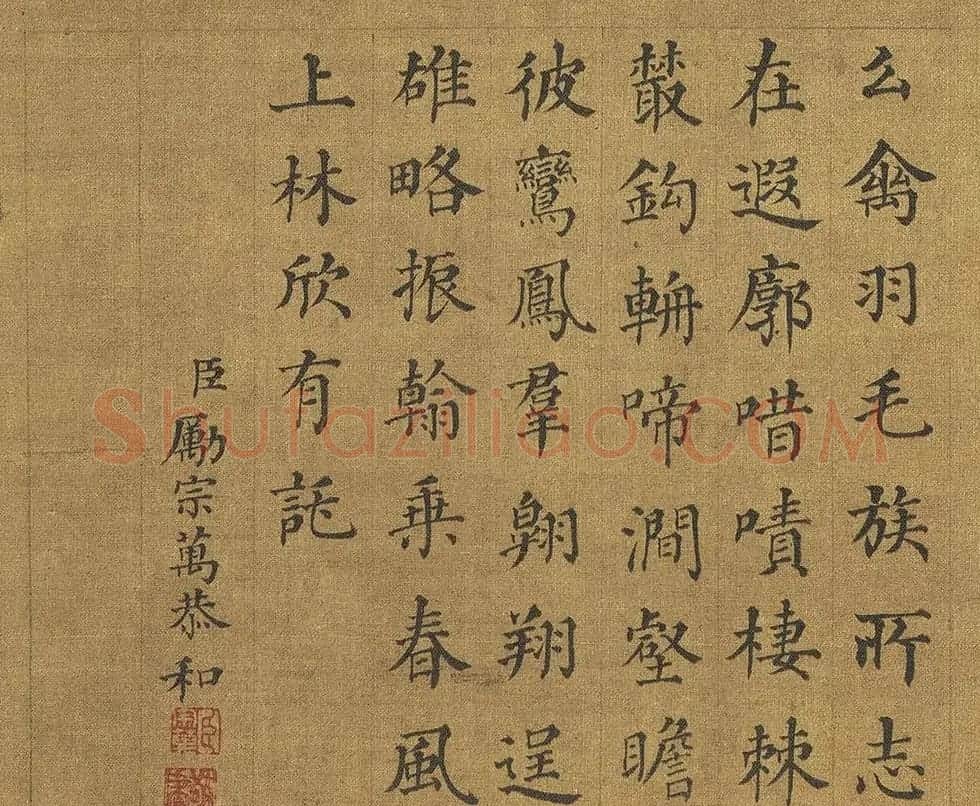 么禽羽毛族所志
在遐廓唶嘖棲棘
叢鈎輈啼澗壑瞻
彼鸞鳳羣翱翔逞
雄略振翰乗春風
上林欣有託
臣勵宗萬恭和
Shufaziliao.COM